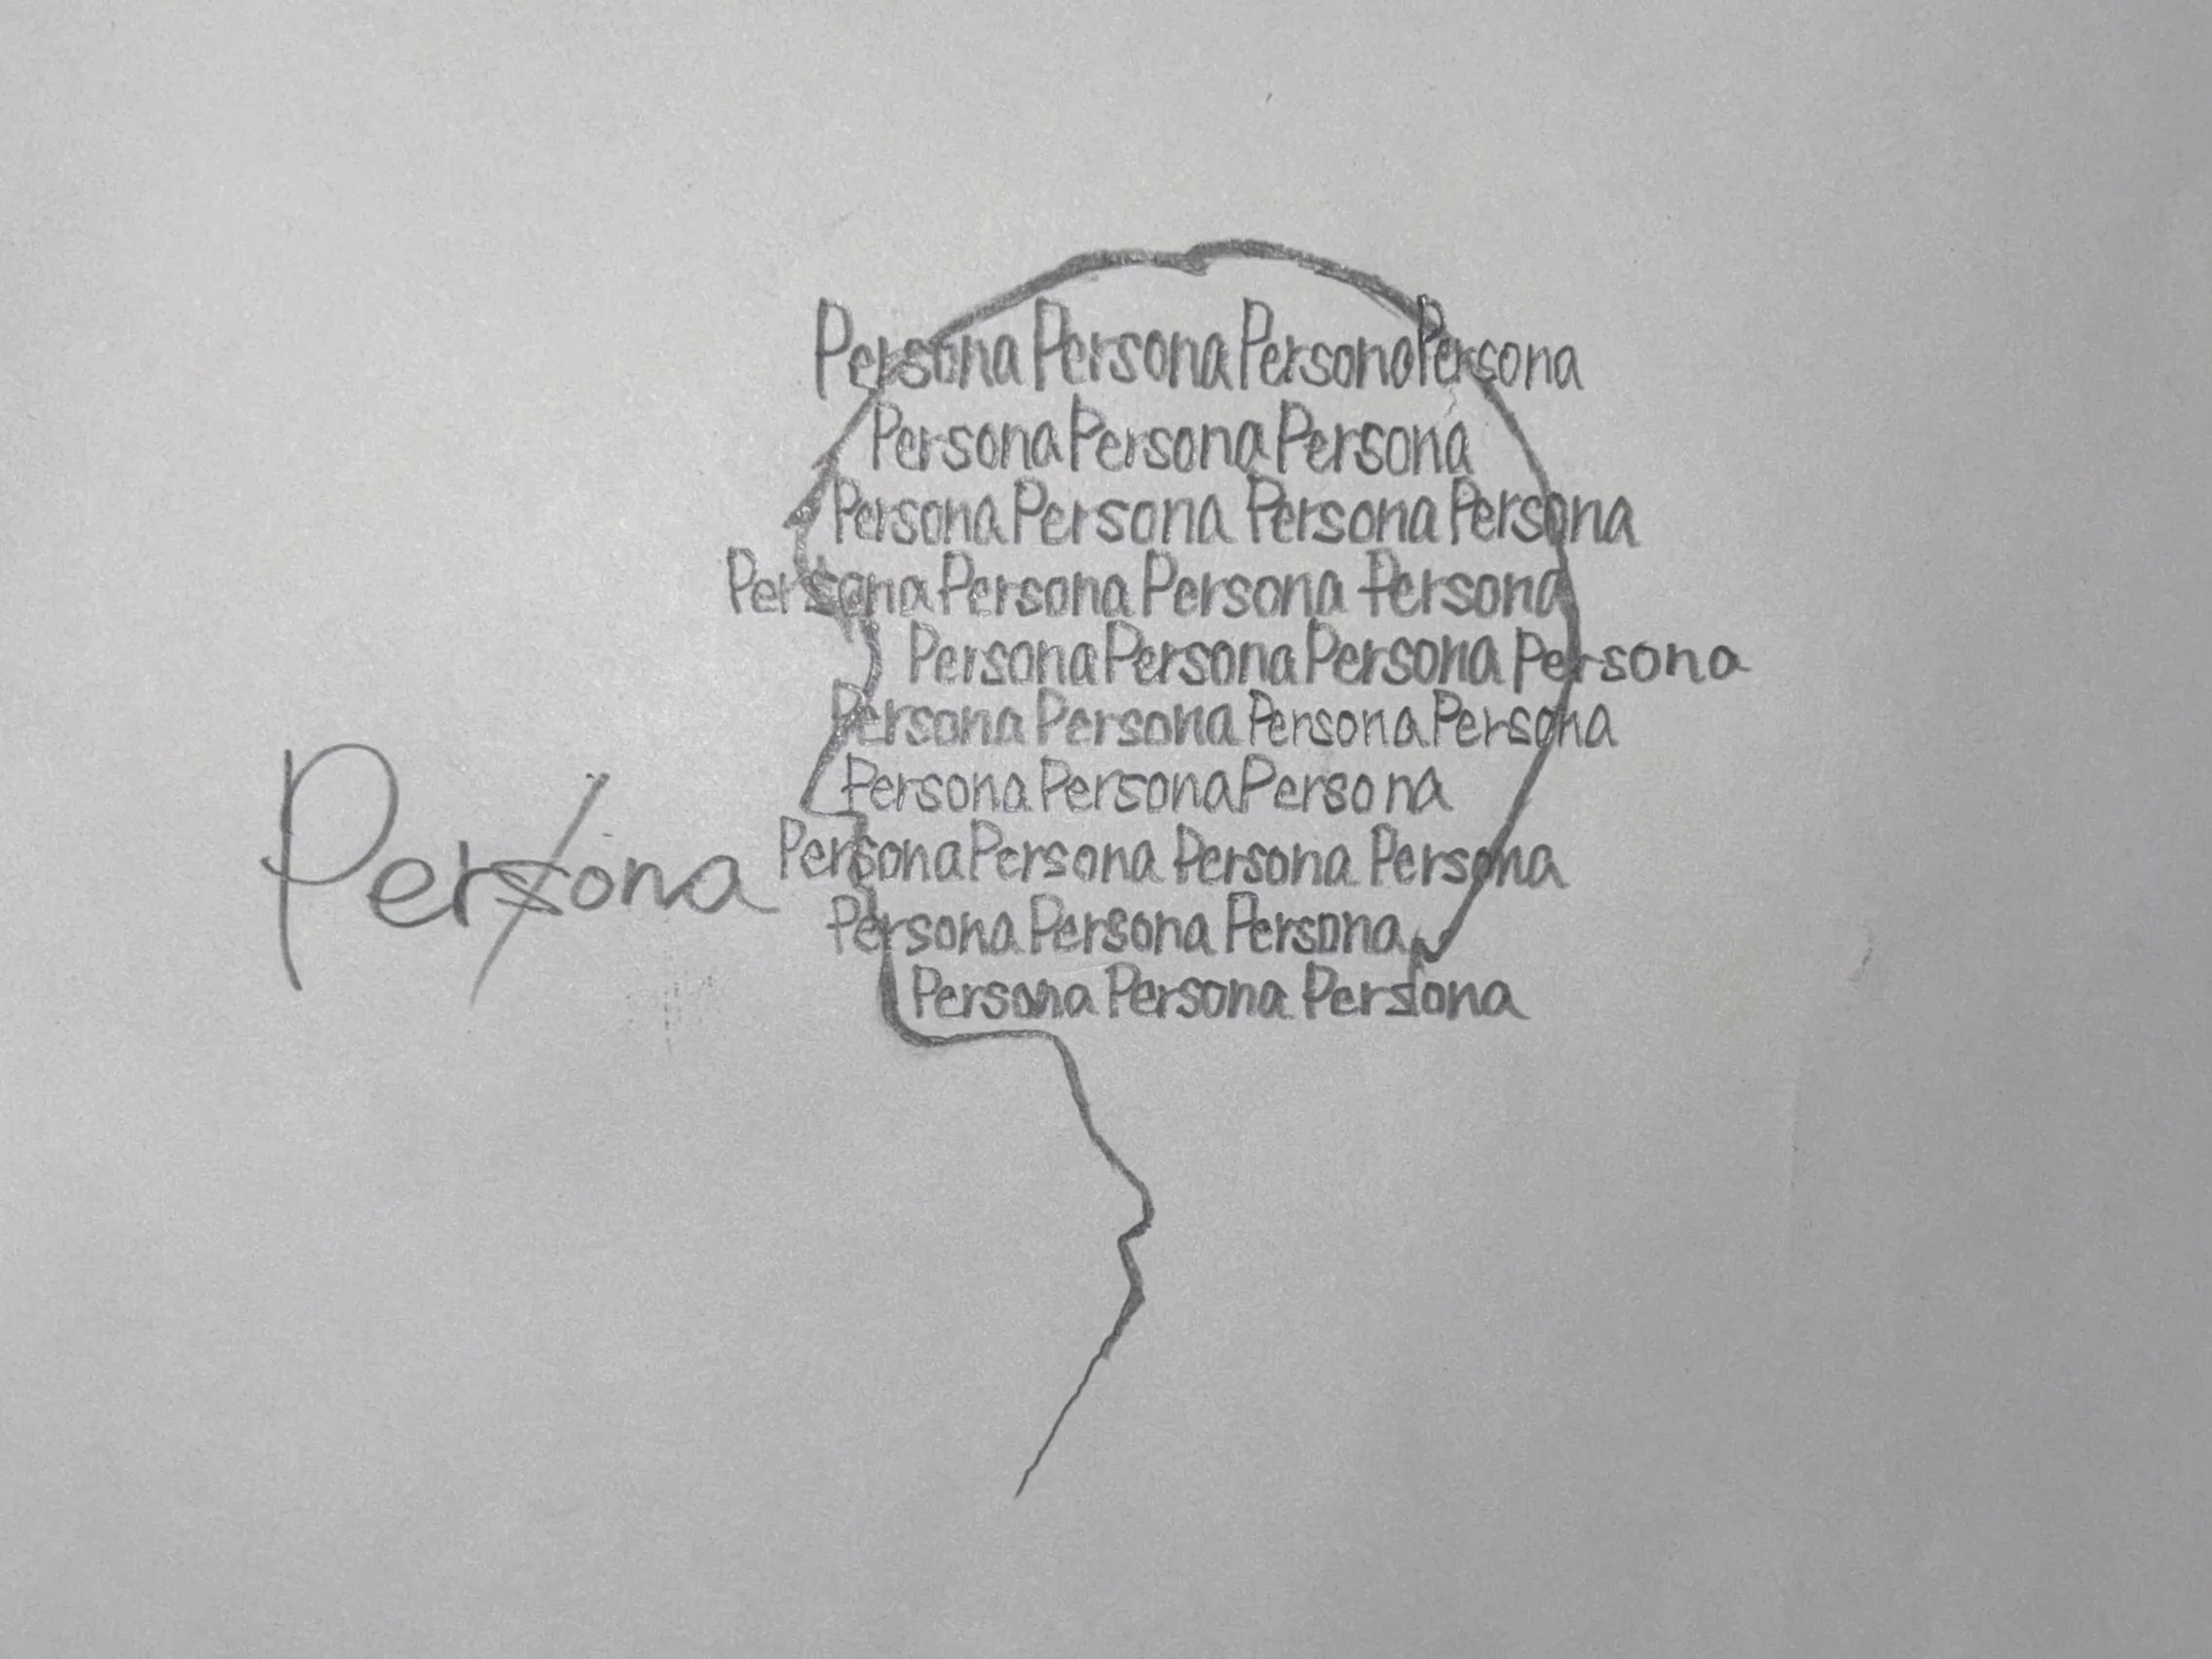 Persona Persona Persona Persona
Persona Persona Persona
Persona Persona Persona Persona
Persona Persona Persona Persona
Persona Persona Persona Persona
Persona Persona Persona Persona
Persona Persona Persona
Persona Persona Persona Persona
Persona Persona Persona
Persona Persona Persona
Persona